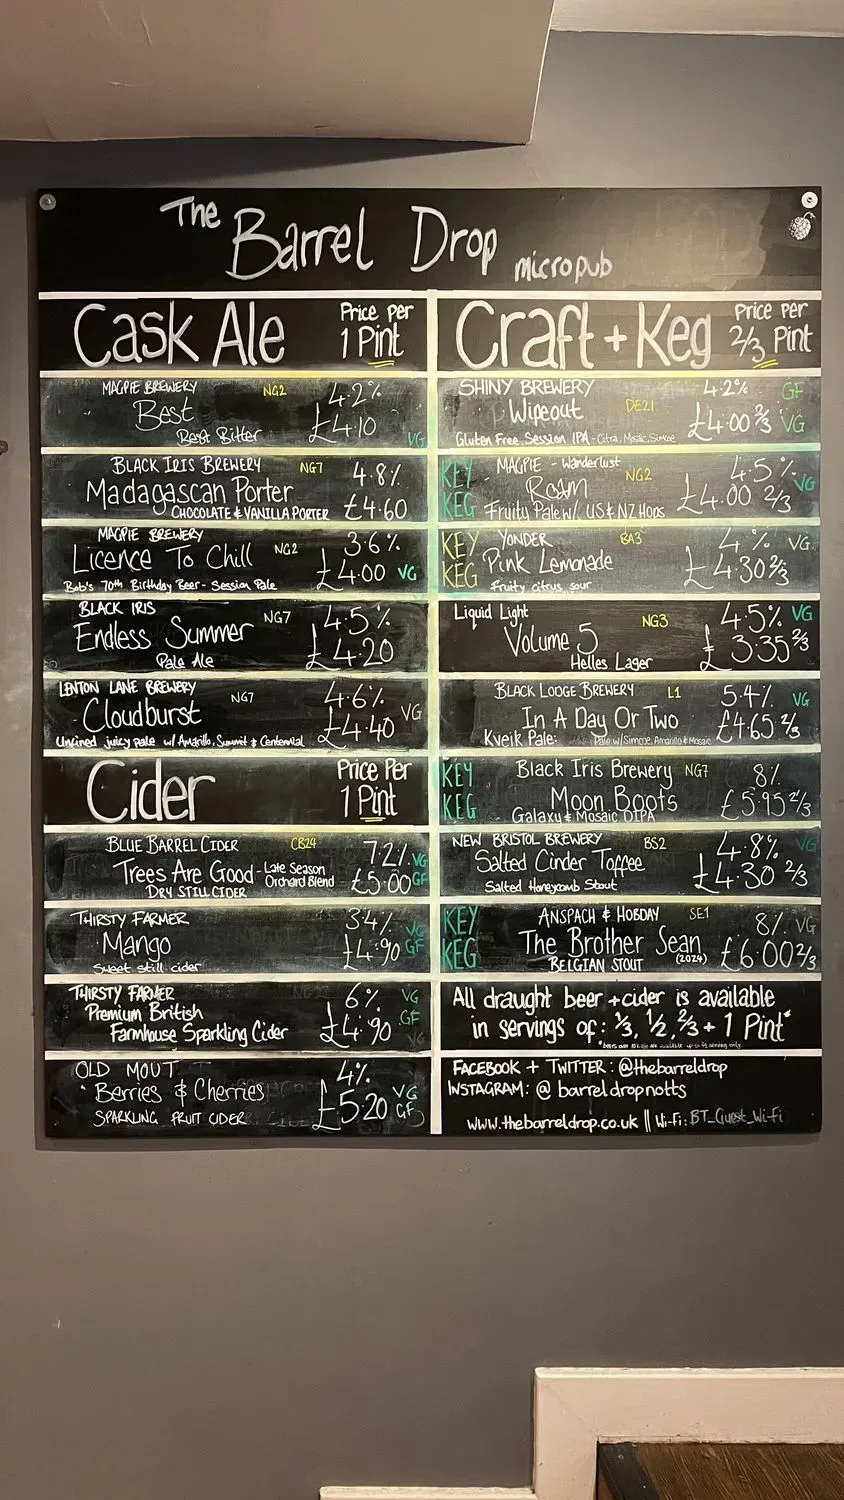 The Barrel Drop micropub
Cask Ale
Price per
1 Pint
MAGPIE BREWERY NG2 4.2%
Best
£4.10
Best Bitter VG
BLACK IRIS BREWERY NG7 4.8%
Madagascan Porter
CHOCOLATE & VANILLA PORTER £4.60
MAGPIE BREWERY 3.6%
Licence To Chill NG2
£4.00 VG
Bob's 70th Birthday Beer - Session Pale
BLACK IRIS NG7 4.5%
Endless Summer
£4.20
Pale Ale
LENTON LANE BREWERY NG7 4.6%
Cloudburst VG
£4.40
Unfined juicy pale w/ Amarillo, Summit & Centennial
Cider
Price Per
1 Pint
BLUE BARREL CIDER CB24 7.2% VG
Trees Are Good - Late Season
Orchard Blend £5.00 GF
DRY STILL CIDER
THIRSTY FARMER 3.4% VG
Mango
£4.90 GF
Sweet still cider
THIRSTY FARMER 6% VG
Premium British
GF
Farmhouse Sparkling Cider £4.90
OLD MOUT 4%
Berries & Cherries VG
£5.20 GF
SPARKLING FRUIT CIDER
Craft + Keg
Price per
2/3 Pint
SHINY BREWERY 4.2% GF
Wipeout DE21
£4.00 2/3 VG
Gluten Free Session IPA - Citra, Mosaic, Simcoe
KEY MAGPIE - Wanderlust 4.5%
Roam NG2 VG
KEG Fruity Pale w/ US & NZ Hops £4.00 2/3
KEY YONDER BA3 4% VG
KEG Pink Lemonade £4.30 2/3
Fruity citrus sour
Liquid Light NG3 4.5% VG
Volume 5
£3.35 2/3
Helles Lager
BLACK LODGE BREWERY L1 5.4% VG
In A Day Or Two £4.65 2/3
Kveik Pale: Pale w/ Simcoe, Amarillo & Mosaic
KEY Black Iris Brewery NG7 8%
KEG Moon Boots £5.95 2/3
Galaxy & Mosaic DIPA
NEW BRISTOL BREWERY BS2 4.8% VG
Salted Cinder Toffee
£4.30 2/3
Salted Honeycomb Stout
KEY ANSPACH & HOBDAY SE1 8% VG
KEG The Brother Sean £6.00 2/3
BELGIAN STOUT (2024)
All draught beer + cider is available
in servings of: 1/3, 1/2, 2/3 + 1 Pint*
FACEBOOK + TWITTER: @thebarreldrop
INSTAGRAM: @barreldropnotts
www.thebarreldrop.co.uk || Wi-Fi: BT_Guest_Wi-fi